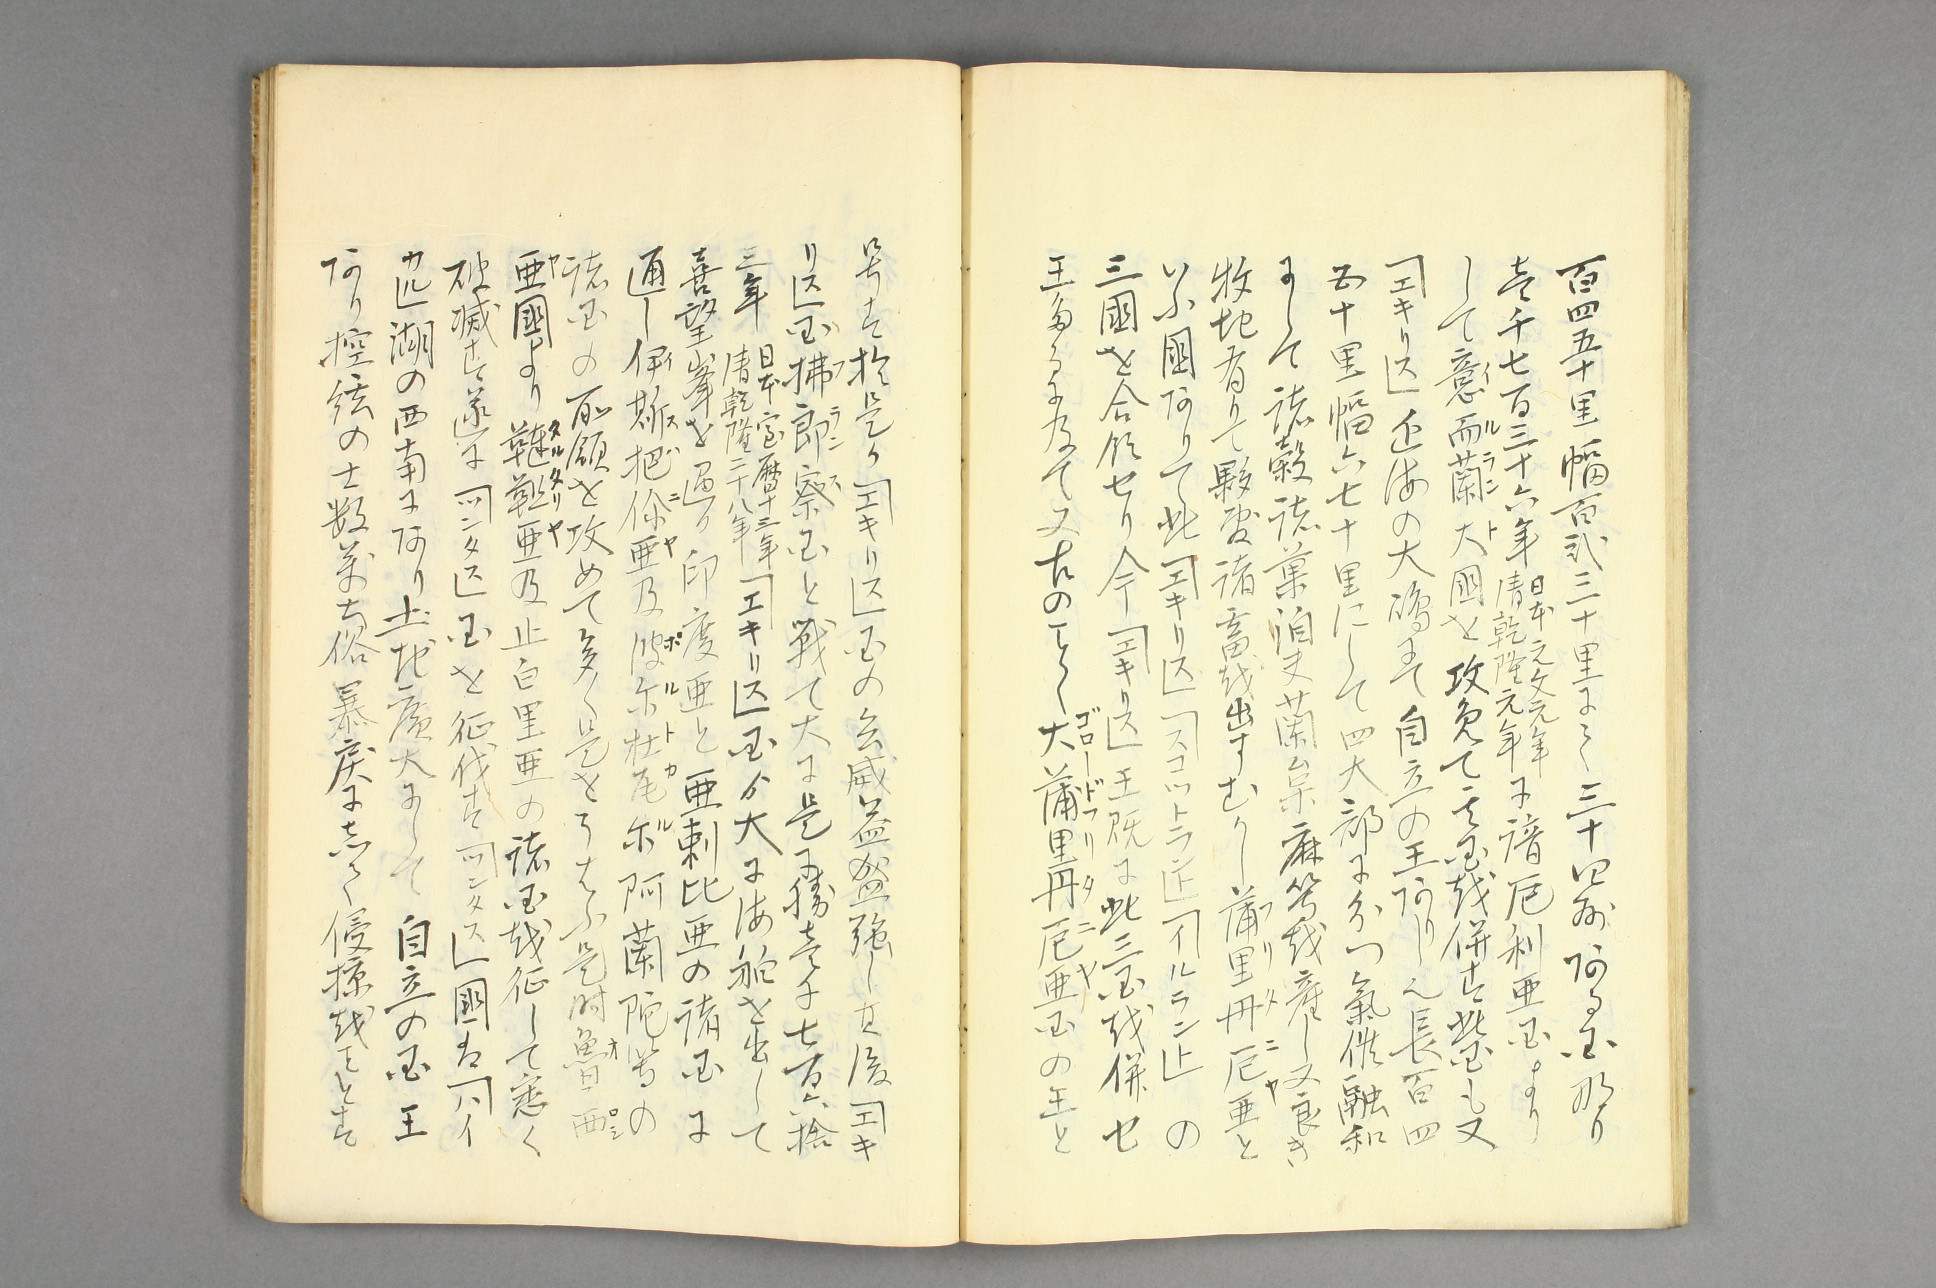 百四五十里幅百弐三十里にて三十四州ある国那り
壱千七百三十六年日本元文元年清乾隆元年に諳厄利亜国より
して意而蘭大国を攻免て其国越併す此国も又
「エキリス」近海の大嶋にて自立の王ありし也長百四
五十里幅六七十里にして四大部に分つ氣候融和
にして諸穀諸菓泊夫蘭枲麻等越産し又良き
牧地有りて夥敷諸畜越出すむかし蒲里丹尼亜と
いふ國ありて此「エキリス」「スコットランド」「イルランド」の
三國を合領せり今「エキリス」王既に此三国越併せ
王たるに及て又古のことく大蒲里丹尼亜国の王と
号す於是か「エキリス」国の兵威益盛強し其後「エキ
リス」国拂郎察国と戦て大に是に勝壱千七百六拾
三年日本宝暦十三年清乾隆二十八年「エキリス」国ゟ大に海舶を出して
喜望峯を過り印度亜と亜剌比亜の諸国に
通し伊斯把你亜及波尓杜瓦尓阿蘭陀等の
諸国の所領を攻めて多く是をうはふ是時魯西
亜國より韃靼亜及止白里亜の諸国越征して悉く
破滅す遂に「コンタス」国を征伐す「コンタス」國者「ハイ
カル」湖の西南にあり土地廣大にして自立の国王
あり控弦の士数萬土俗暴戻にして侵掠越事とす